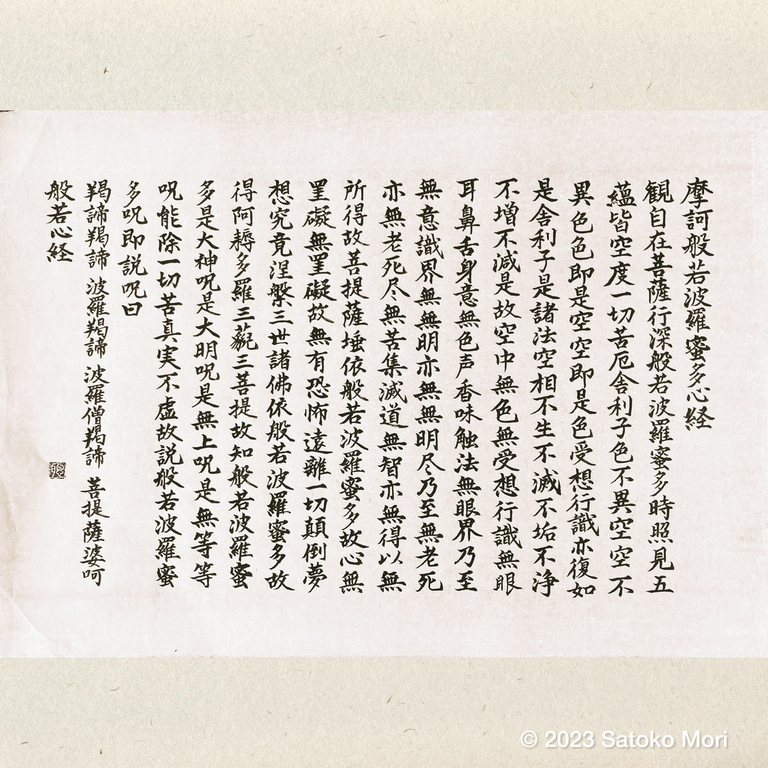 摩訶般若波羅蜜多心経
観自在菩薩行深般若波羅蜜多時照見五
蘊皆空度一切苦厄舎利子色不異空空不
異色色即是空空即是色受想行識亦復如
是舎利子是諸法空相不生不滅不垢不浄
不増不減是故空中無色無受想行識無眼
耳鼻舌身意無色声香味触法無眼界乃至
無意識界無無明亦無無明尽乃至無老死
亦無老死尽無苦集滅道無智亦無得以無
所得故菩提薩埵依般若波羅蜜多故心無
罣礙無罣礙故無有恐怖遠離一切顛倒夢
想究竟涅槃三世諸佛依般若波羅蜜多故
得阿耨多羅三藐三菩提故知般若波羅蜜
多是大神呪是大明呪是無上呪是無等等
呪能除一切苦真実不虚故説般若波羅蜜
多呪即説呪曰
羯諦羯諦 波羅羯諦 波羅僧羯諦 菩提薩婆呵
般若心経
© 2023 Satoko Mori